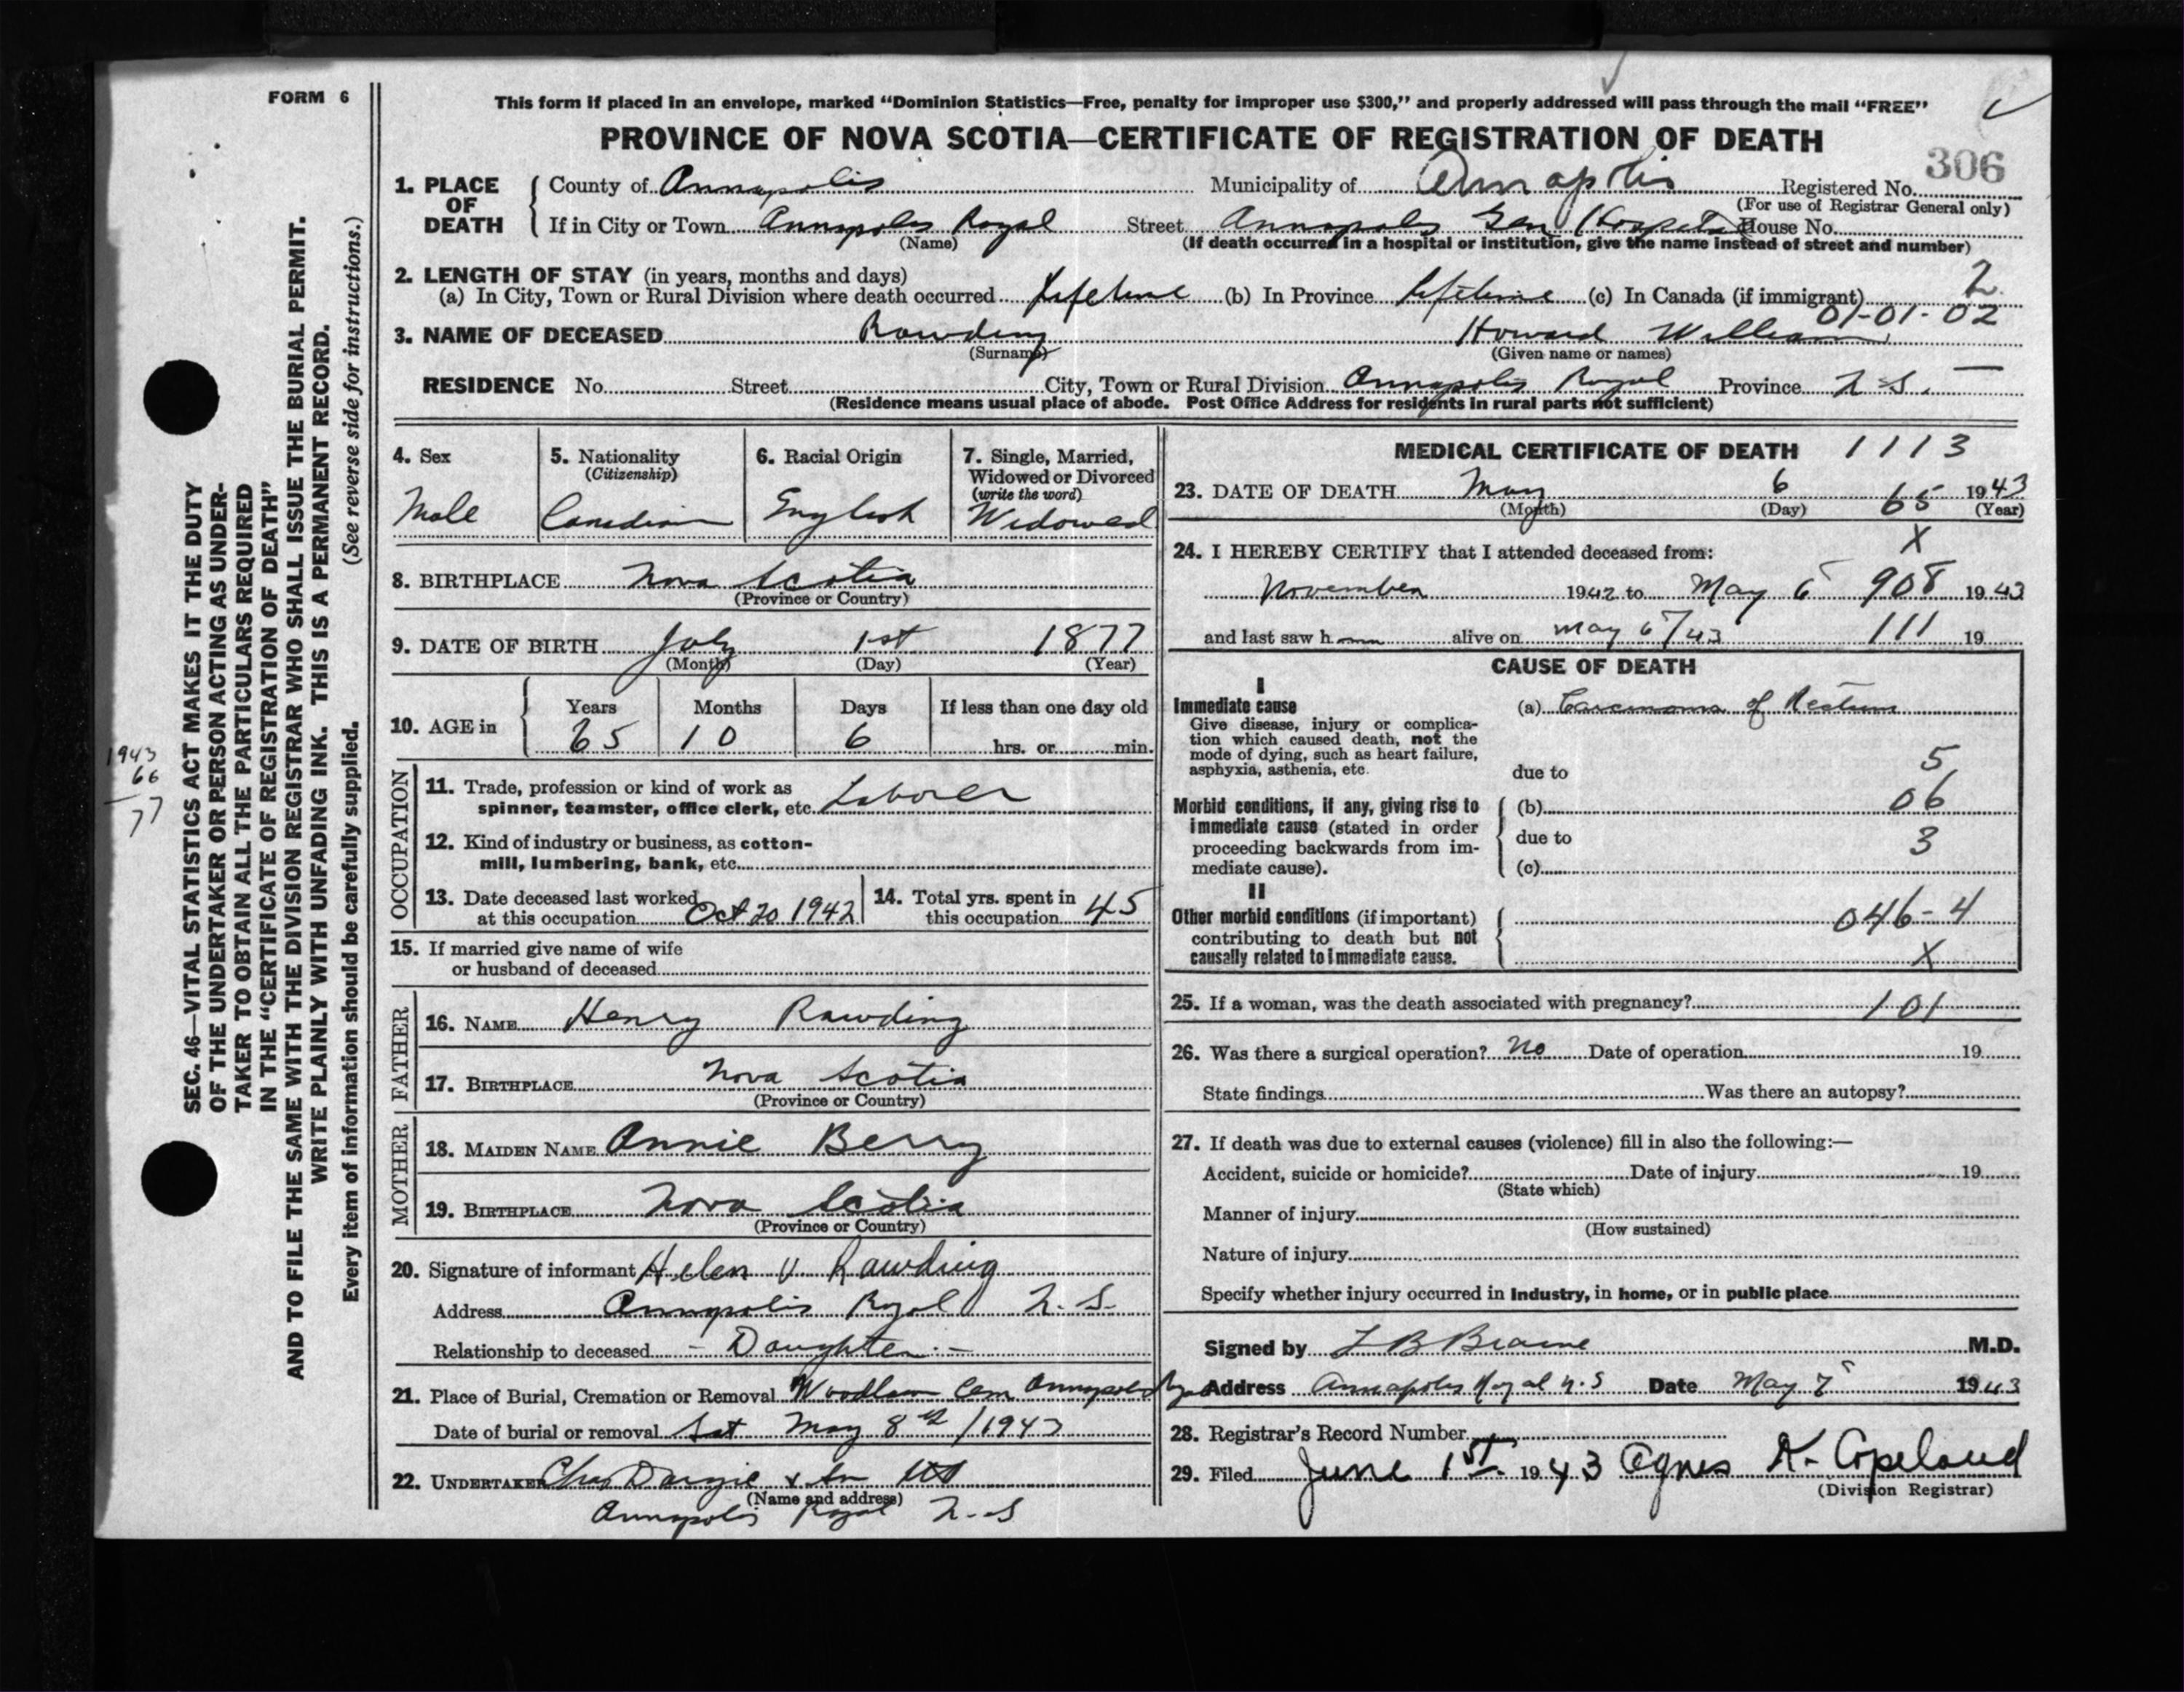 FORM 6
This form if placed in an envelope, marked “Dominion Statistics—Free, penalty for improper use $300,” and properly addressed will pass through the mail “FREE”
PROVINCE OF NOVA SCOTIA—CERTIFICATE OF REGISTRATION OF DEATH
306
1. PLACE OF DEATH { County of Annapolis Municipality of Annapolis Registered No.
(For use of Registrar General only)
If in City or Town Annapolis Royal Street Annapolis Gen Hospital House No.
(Name) (If death occurred in a hospital or institution, give the name instead of street and number)
2. LENGTH OF STAY (in years, months and days) 2
(a) In City, Town or Rural Division where death occurred Lifetime (b) In Province Lifetime (c) In Canada (if immigrant)
01-01-02
3. NAME OF DECEASED Rawding Howard William
(Surname) (Given name or names)
RESIDENCE No. Street City, Town or Rural Division Annapolis Royal Province N.S.
(Residence means usual place of abode. Post Office Address for residents in rural parts not sufficient)
4. Sex Male
5. Nationality (Citizenship) Canadian
6. Racial Origin English
7. Single, Married, Widowed or Divorced (write the word) Widowed
8. BIRTHPLACE Nova Scotia
(Province or Country)
9. DATE OF BIRTH July 1st 1877
(Month) (Day) (Year)
10. AGE in { Years 65 Months 10 Days 6 If less than one day old hrs. or min.
OCCUPATION
11. Trade, profession or kind of work as
spinner, teamster, office clerk, etc. Laborer
12. Kind of industry or business, as cotton-
mill, lumbering, bank, etc.
13. Date deceased last worked
at this occupation Oct 20 1942
14. Total yrs. spent in
this occupation 45
15. If married give name of wife
or husband of deceased
FATHER
16. NAME Henry Rawding
17. BIRTHPLACE Nova Scotia
(Province or Country)
MOTHER
18. MAIDEN NAME Annie Berry
19. BIRTHPLACE Nova Scotia
(Province or Country)
20. Signature of informant Helen V Rawding
Address Annapolis Royal N.S.
Relationship to deceased - Daughter -
21. Place of Burial, Cremation or Removal Woodlawn Cem Annapolis Royal
Date of burial or removal Sat May 8th/1943
22. UNDERTAKER Chas Dargie & Son Ltd
(Name and address)
Annapolis Royal N.S
MEDICAL CERTIFICATE OF DEATH 1113
23. DATE OF DEATH May 6 65 1943
(Month) (Day) (Year)
X
24. I HEREBY CERTIFY that I attended deceased from:
November 1942 to May 6 908 1943
and last saw h alive on May 6/43 111 19
CAUSE OF DEATH
I
Immediate cause
Give disease, injury or complica-
tion which caused death, not the
mode of dying, such as heart failure,
asphyxia, asthenia, etc.
(a) Carcinoma of Rectum
due to 5
Morbid conditions, if any, giving rise to
immediate cause (stated in order
proceeding backwards from im-
mediate cause).
(b) 06
due to 3
(c)
II
Other morbid conditions (if important)
contributing to death but not
causally related to immediate cause.
046-4
X
25. If a woman, was the death associated with pregnancy? 101
26. Was there a surgical operation? No Date of operation 19
State findings Was there an autopsy?
27. If death was due to external causes (violence) fill in also the following:—
Accident, suicide or homicide? Date of injury 19
(State which)
Manner of injury
(How sustained)
Nature of injury
Specify whether injury occurred in industry, in home, or in public place
Signed by L B Braine M.D.
Address Annapolis Royal N.S Date May 7 1943
28. Registrar's Record Number
29. Filed June 1st 1943 Agnes K. Copeland
(Division Registrar)
SEC. 46—VITAL STATISTICS ACT MAKES IT THE DUTY
OF THE UNDERTAKER OR PERSON ACTING AS UNDER-
TAKER TO OBTAIN ALL THE PARTICULARS REQUIRED
IN THE “CERTIFICATE OF REGISTRATION OF DEATH”
AND TO FILE THE SAME WITH THE DIVISION REGISTRAR WHO SHALL ISSUE THE BURIAL PERMIT.
WRITE PLAINLY WITH UNFADING INK. THIS IS A PERMANENT RECORD.
Every item of information should be carefully supplied. (See reverse side for instructions.)
1943
66
77